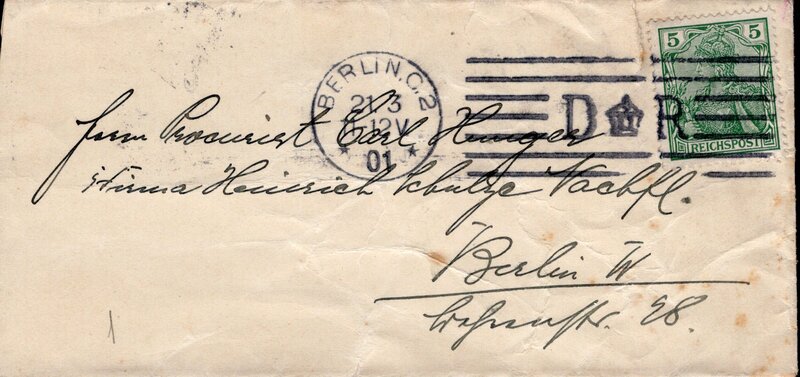 BERLIN.C.2
21 3
12V
01
D R
5 5
REICHSPOST
Herrn Procurist Carl Hunger
i/Firma Heinrich Schulze Nachfl.
Berlin W
28.